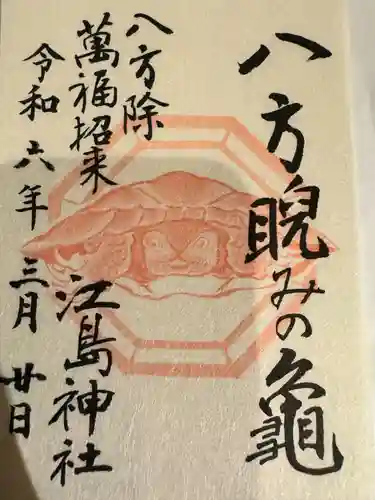 八方睨みの亀
八方除
萬福招来
江島神社
令和六年三月廿日